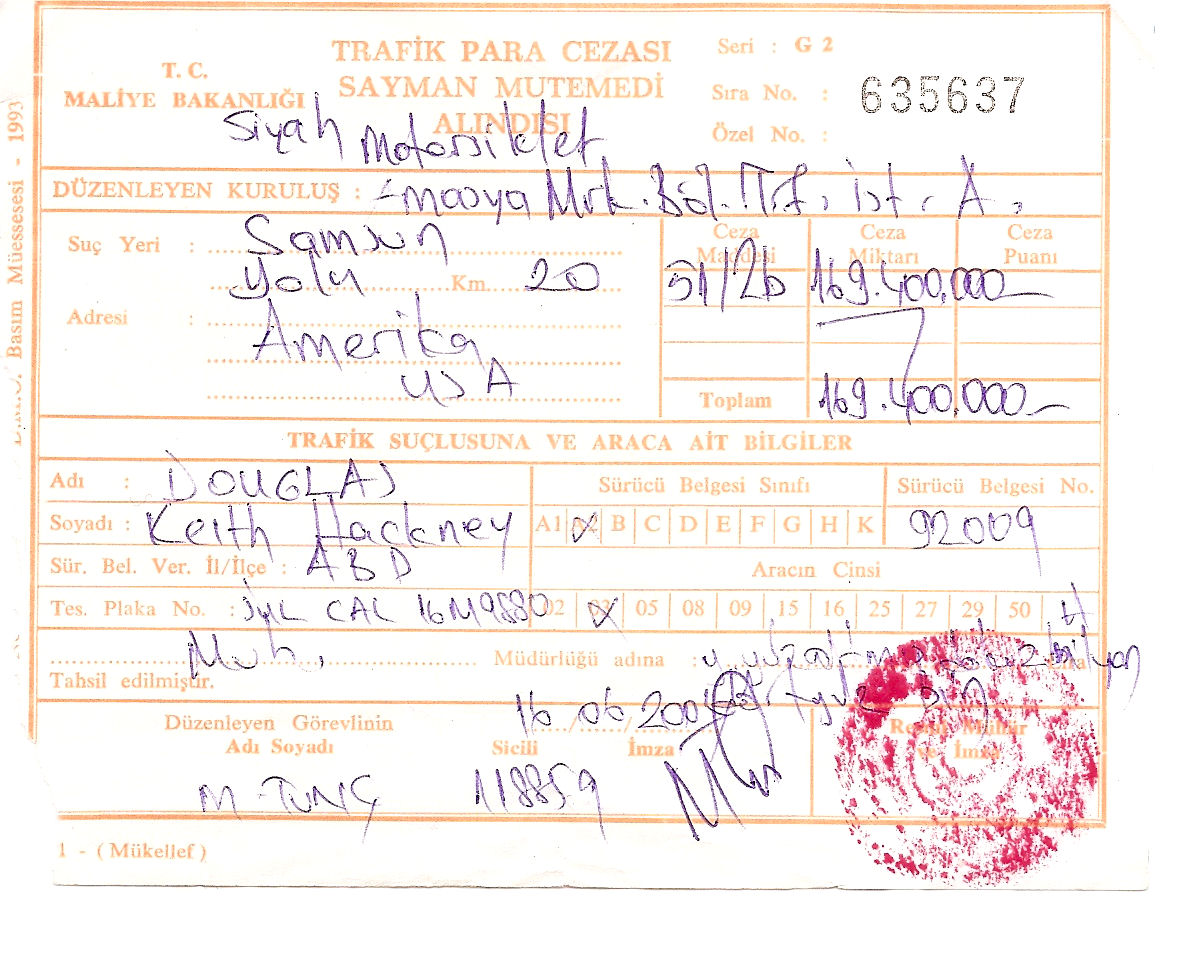 TRAFİK PARA CEZASI
SAYMAN MUTEMEDİ
ALINDISI
T. C.
MALİYE BAKANLIĞI
Seri : G 2
Sıra No. : 635637
Özel No. :
Siyah Motorsiklet
DÜZENLEYEN KURULUŞ : Amasya Mrk. Böl. Trf. İst. A.
Suç Yeri : Samsun
Yolu Km. 20
Adresi : Amerika
USA
Ceza Maddesi Ceza Miktarı Ceza Puanı
51/2b 169.400.000
Toplam 169.400.000
TRAFİK SUÇLUSUNA VE ARACA AİT BİLGİLER
Adı : DOUGLAS
Soyadı : Keith Hackney
Sürücü Belgesi Sınıfı
A1 B C D E F G H K
Sürücü Belgesi No.
92009
Sür. Bel. Ver. İl/İlçe : ABD
Aracın Cinsi
Tes. Plaka No. : CAL 16M9880
02 05 08 09 15 16 25 27 29 50
Muh. Müdürlüğü adına :
Tahsil edilmiştir.
16/06/200
Düzenleyen Görevlinin
Adı Soyadı Sicili İmza
Resmi Mühür
ve İmza
M. TUNÇ 118859
1 - ( Mükellef )
Basım Müessesesi - 1993